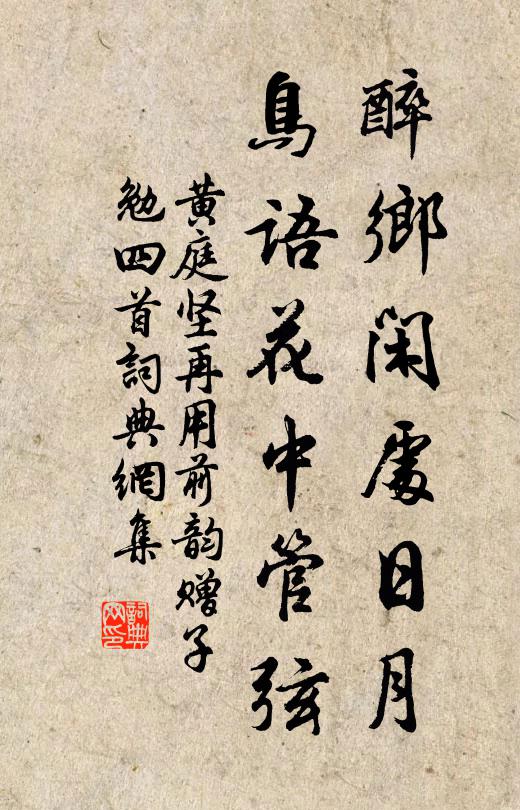 醉鄉閑處日月
鳥語花中管弦
黄庭坚再用前韵赠子
勉四首詞典網集
詞典网印